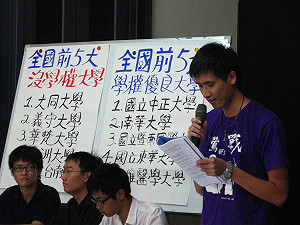 全國前5大
沒學權大學
1.大同大學
2.義守大學
3.華梵大學
洲大學
台南
全國前5大
學權優良大學
1.國立中正大
2.南華大學
3.國立暨南
4.國立東華大學
醫學大學
戰